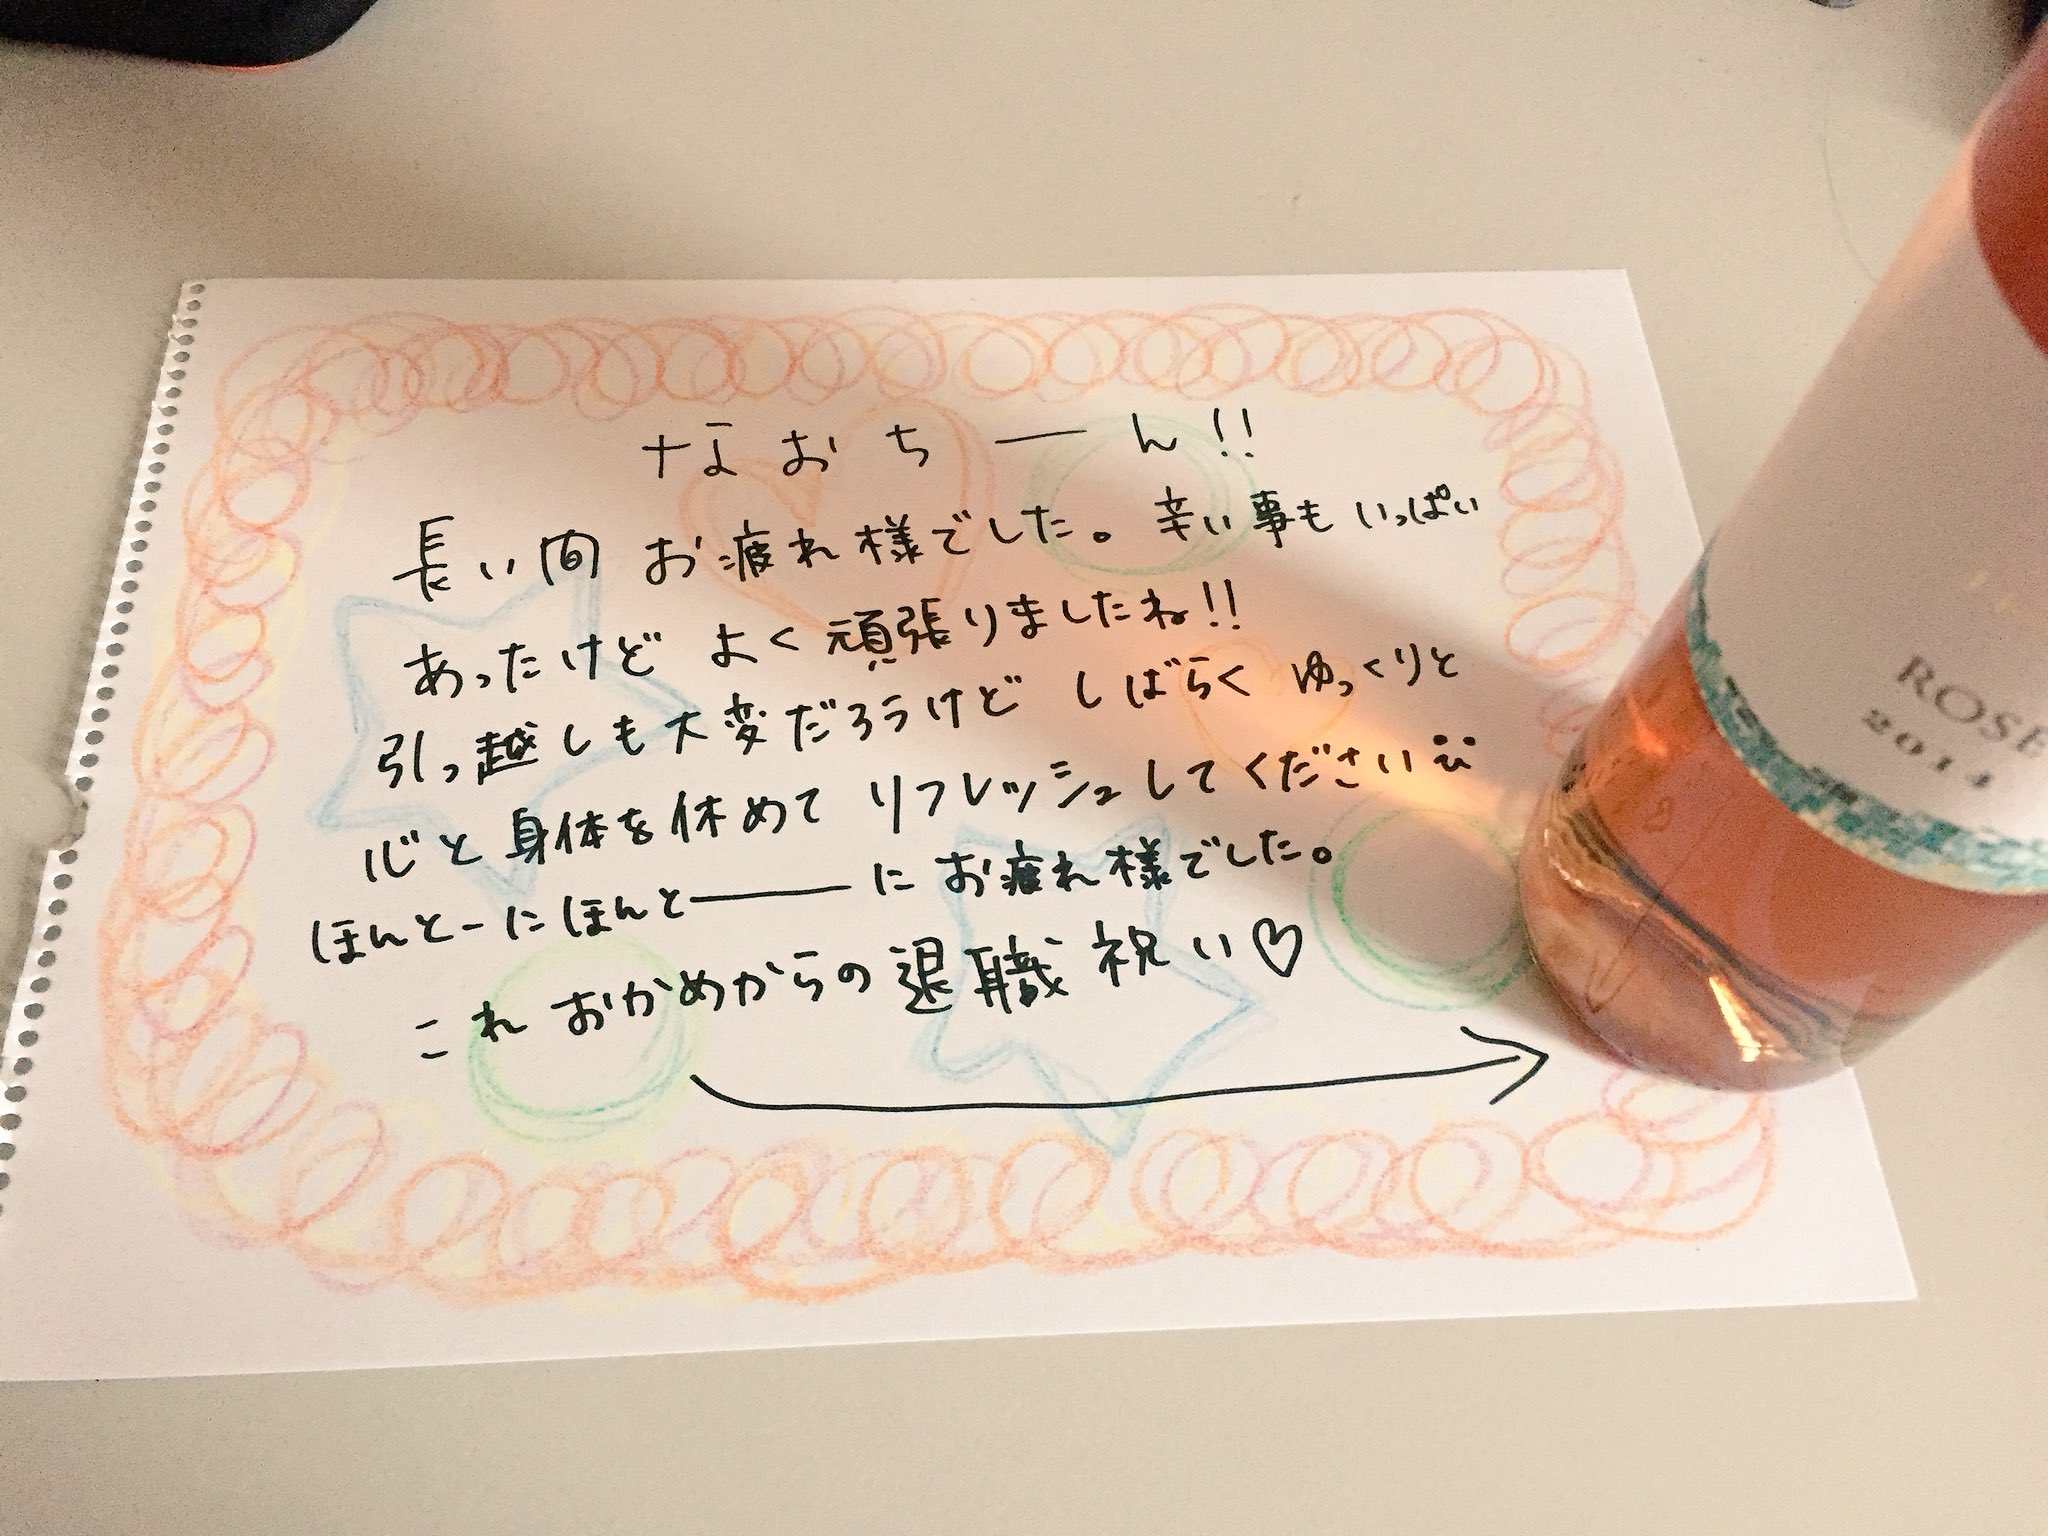 なおちーん!!
長い間 お疲れ様でした。辛い事もいっぱい
あったけど よく頑張りましたね!!
引っ越しも大変だろうけど しばらく ゆっくりと
心と身体を休めて リフレッシュしてください
ほんとーにほんと――に お疲れ様でした。
これ おかめからの退職祝い♡
ROSE
2014